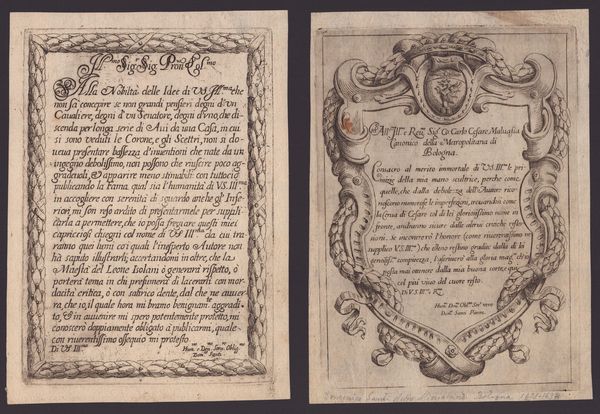 Ill.mo Sig.r Sig. Pron. Col.mo
Alla Nobiltà delle Idee di VS Ill.ma che
non sà concepire se non grandi pensieri degni d'vn
Caualiere, degni d'vn Senatore, degni d'vno, che di-
scenda per longa serie di Aui da vna Casa, in cui
si sono veduti le Corone, e gli Scettri, non si do-
ueua presentare bassezza d'inuentioni che nate da un
ingegno debolissimo, non possono che riuscire poco ag-
gradeuoli, & apparire meno stimabili: con tutto ciò
publicando la Fama, qual sia l'humanità di V.S. Ill.ma
in accogliere con serenità di sguardo anche gl'Infe-
riori, mi son reso ardito di presentarmele per suppli-
carla a permettere, che io possa fregiare questi miei
capricciosi disegni col nome di VS Ill.ma da cui tra-
rranno quei lumi co'i quali l'inesperto Autore non
hà saputo illustrarli, accertandomi in oltre, che la
Maestà del Leone Isolani ò generarà rispetto, ò
porterà tema in chi presumerà di lacerarli con mor-
dacità critica, ò con satirico dente, dal che ne auuer-
rà, che io, il quale hora mi bramo benignam. aggradi-
to, & in auuenire mi spero potentemente protetto, mi
conoscerò doppiamente obligato à publicarmi, quale
con riuerentissimo ossequio mi protesto
Di VS Ill.ma
Hum. e Deu. Seru. Oblig.
Dom. Santi
All' Ill. e Reu. Sig. Co: Carlo Cesare Maluagia
Canonico della Metropolitana di
Bologna.
Consacro al merito immortale di V.S. Ill. le pri-
mizie della mia mano scultrice, perche come
quelle, che dalla debolezza dell'Autore rico-
noscono numerose le imperfezioni, recuandosi come
la cerua di Cesare col di lei gloriosissimo nome in
fronte, andranno sicure dalle altrui critiche rifles-
sioni. Se incontrerò l'honore (come riuerentissimo ne
supplico V.S. Ill.) che elleno restino gradite dalla di lei
gentiliss. compitezza, l'ascriuerò alla gloria mag. ch'io
possa mai ottenere dalla mia buona sorte; que
col più viuo del cuore resto.
Di V.S. Ill. e R.
Hum. Deu. Obl. Ser. vero
Dom. Santi Pittore.
Domenico Santi Bologna 1621-1694